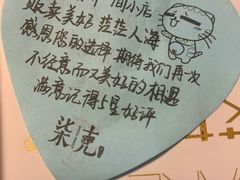 间小店
贩卖美好 茫茫人海
感恩您的选择 期待我们再一次
不经意而又美好的相遇
满意记得5星好评
柒克